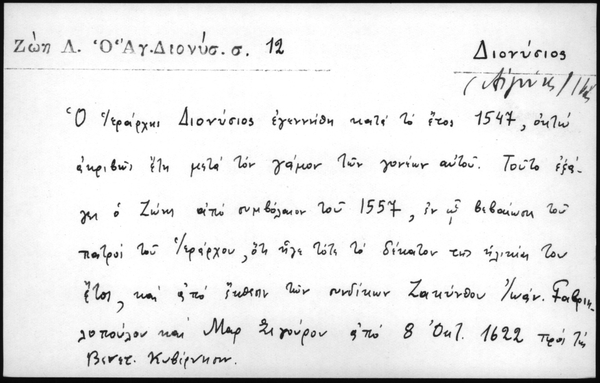 Ζώη Λ. Ὁ Ἅγ. Διονύσ. σ. 12
Διονύσιος
(Αἰγίνης
Ὁ Ἱεράρχης Διονύσιος ἐγεννήθη κατά τό ἔτος 1547, ὀκτώ
ἀκριβῶς ἔτη μετά τόν γάμον τῶν γονέων αὐτοῦ. Τοῦτο ἐξά-
γει ὁ Ζώης ἀπό συμβόλαιον τοῦ 1557, ἐν ᾧ βεβαίωσις τοῦ
πατρός τοῦ Ἱεράρχου, ὅτι ἦγε τότε τό δέκατον της ἡλικίας του
ἔτος, καί ἀπό ἔκθεσιν τῶν συνδίκων Ζακύνθου Ἰωάν. Γαβριη-
λοπούλου καί Μαρ Σιγούρου ἀπό 8 Ὀκτ. 1622 πρός τήν
Βενετ. Κυβέρνησιν.